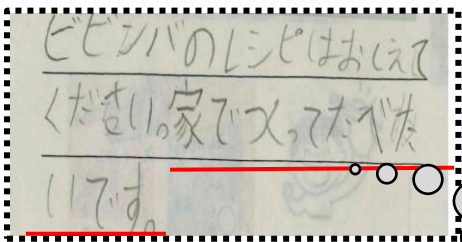 ビビンバのレシピはおしえて
ください。家でつくってたべた
いです。